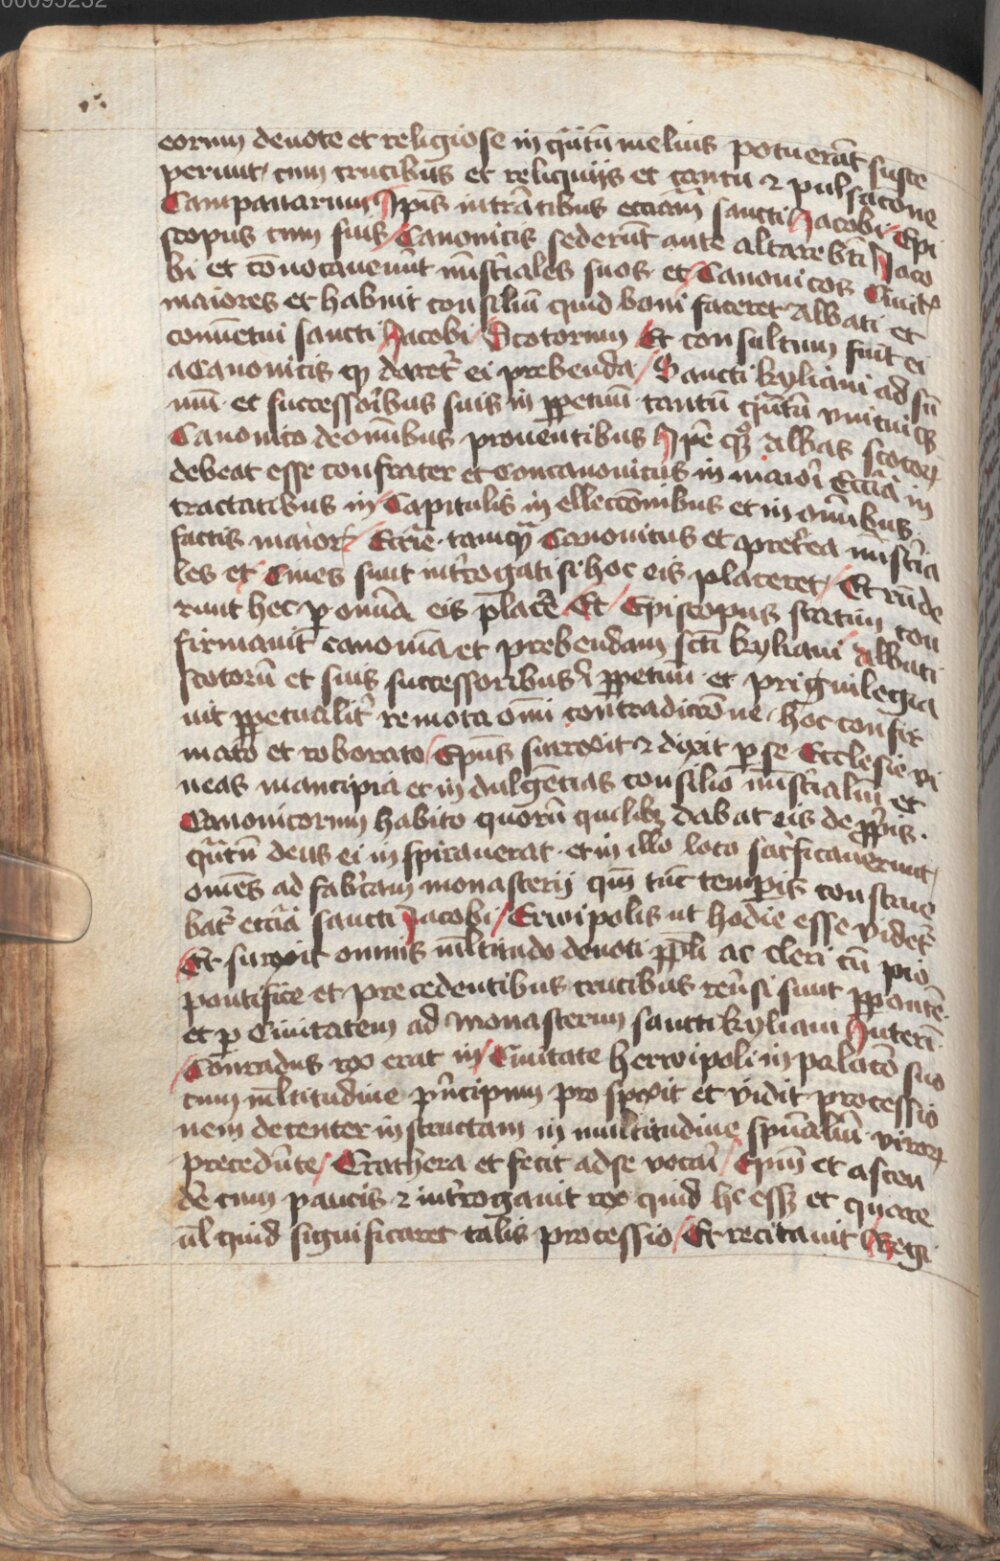 00095232
eorum deuote et religiose in qũtũ melius potuerãt susce
perunt / cum crucibus et reliquijs et cantu ⁊ pulsacõne
Campanarum Ip̃is intrãtibus eccl̃iam sancti Jacobi / Epi
scopus cum suis / Canonicis sederũt ante altare bt̃i Jaco
bi et cõuocauerũt mĩstr̃iales suos et / Canonicos Ciuit
maiores et habuit consiliũ quid boni faceret Abbati et
conuẽtui sancti Jacobi / Scotorum / Et consultum fuit ei
a Canonicis ꝙ daret̃ ei prebenda / Sancti kyliani ad sũ
mũ et successoribus suis in ꝑpetuũ tantũ qũtũ vnicuiqꝫ
Canonico de om̃ibus prouentibus Ip̃e qͦꝫ Abbas scotoꝝ
debeat esse confrater et Concanonicus in maiori Eccl̃ia in
tractatibus in / Capitulis in elleccõnibus et in om̃ibus
factis maioris / Eccl̃ie tamqᷓ Canonicus et pret̃ea mĩstr̃ia
les et Ciues sunt int̃rogati si hoc eis placeret / Et rñde
runt hec ꝑ omĩa eis placẽ / Et / Episcopus statim con
firmauit canoniã et prebendam sc̃ti kyliani Abbati
scotorũ et suis successoribus ĩ ꝑpetuũ et priguilegia
uit ꝑpetualit̃ remota om̃i contradiccõne / hoc confir
mato et roborato / Ep̃us surrexit ⁊ dixit ꝑ se Ecclesie vi
neas mancipia et indulgẽcias consilio mĩstr̃aliũ et
Canonicorum habito quorũ quilibꝫ dabat eis de ꝓprijs
qũtũ deus ei inspirauerat et in illo loco sacrificauerunt /
om̃es ad fabricam monasterij qm̃ tũc temporis construe
bat̃ eccl̃ia sancti Jacobi / Erwipolis ut hodie esse videt̃
Et surrexit omnis ml̃titudo deuoti ppl̃i ac cleri cũ pio
pontifice et precedentibus crucibus reũsi sunt ꝑ pontẽ
et ꝑ Ciuitatem ad Monasterium sancti kyliani Interi
/ Conradus rex erat in / Ciuitate herwipoli in palacõ suo
cum ml̃titudine pr̃ncipum prospexit et vidit processio
nem decenter instructam in multitudine spũaliũ viroꝝ
precedẽte / Crathera et fecit ad se vocari / Ep̃m et ascen
dẽ cum paucis ⁊ int̃rogauit rex quid hc̃ essꝫ et quare
ul̃ quid significaret talis processio / Et recitauit Regi